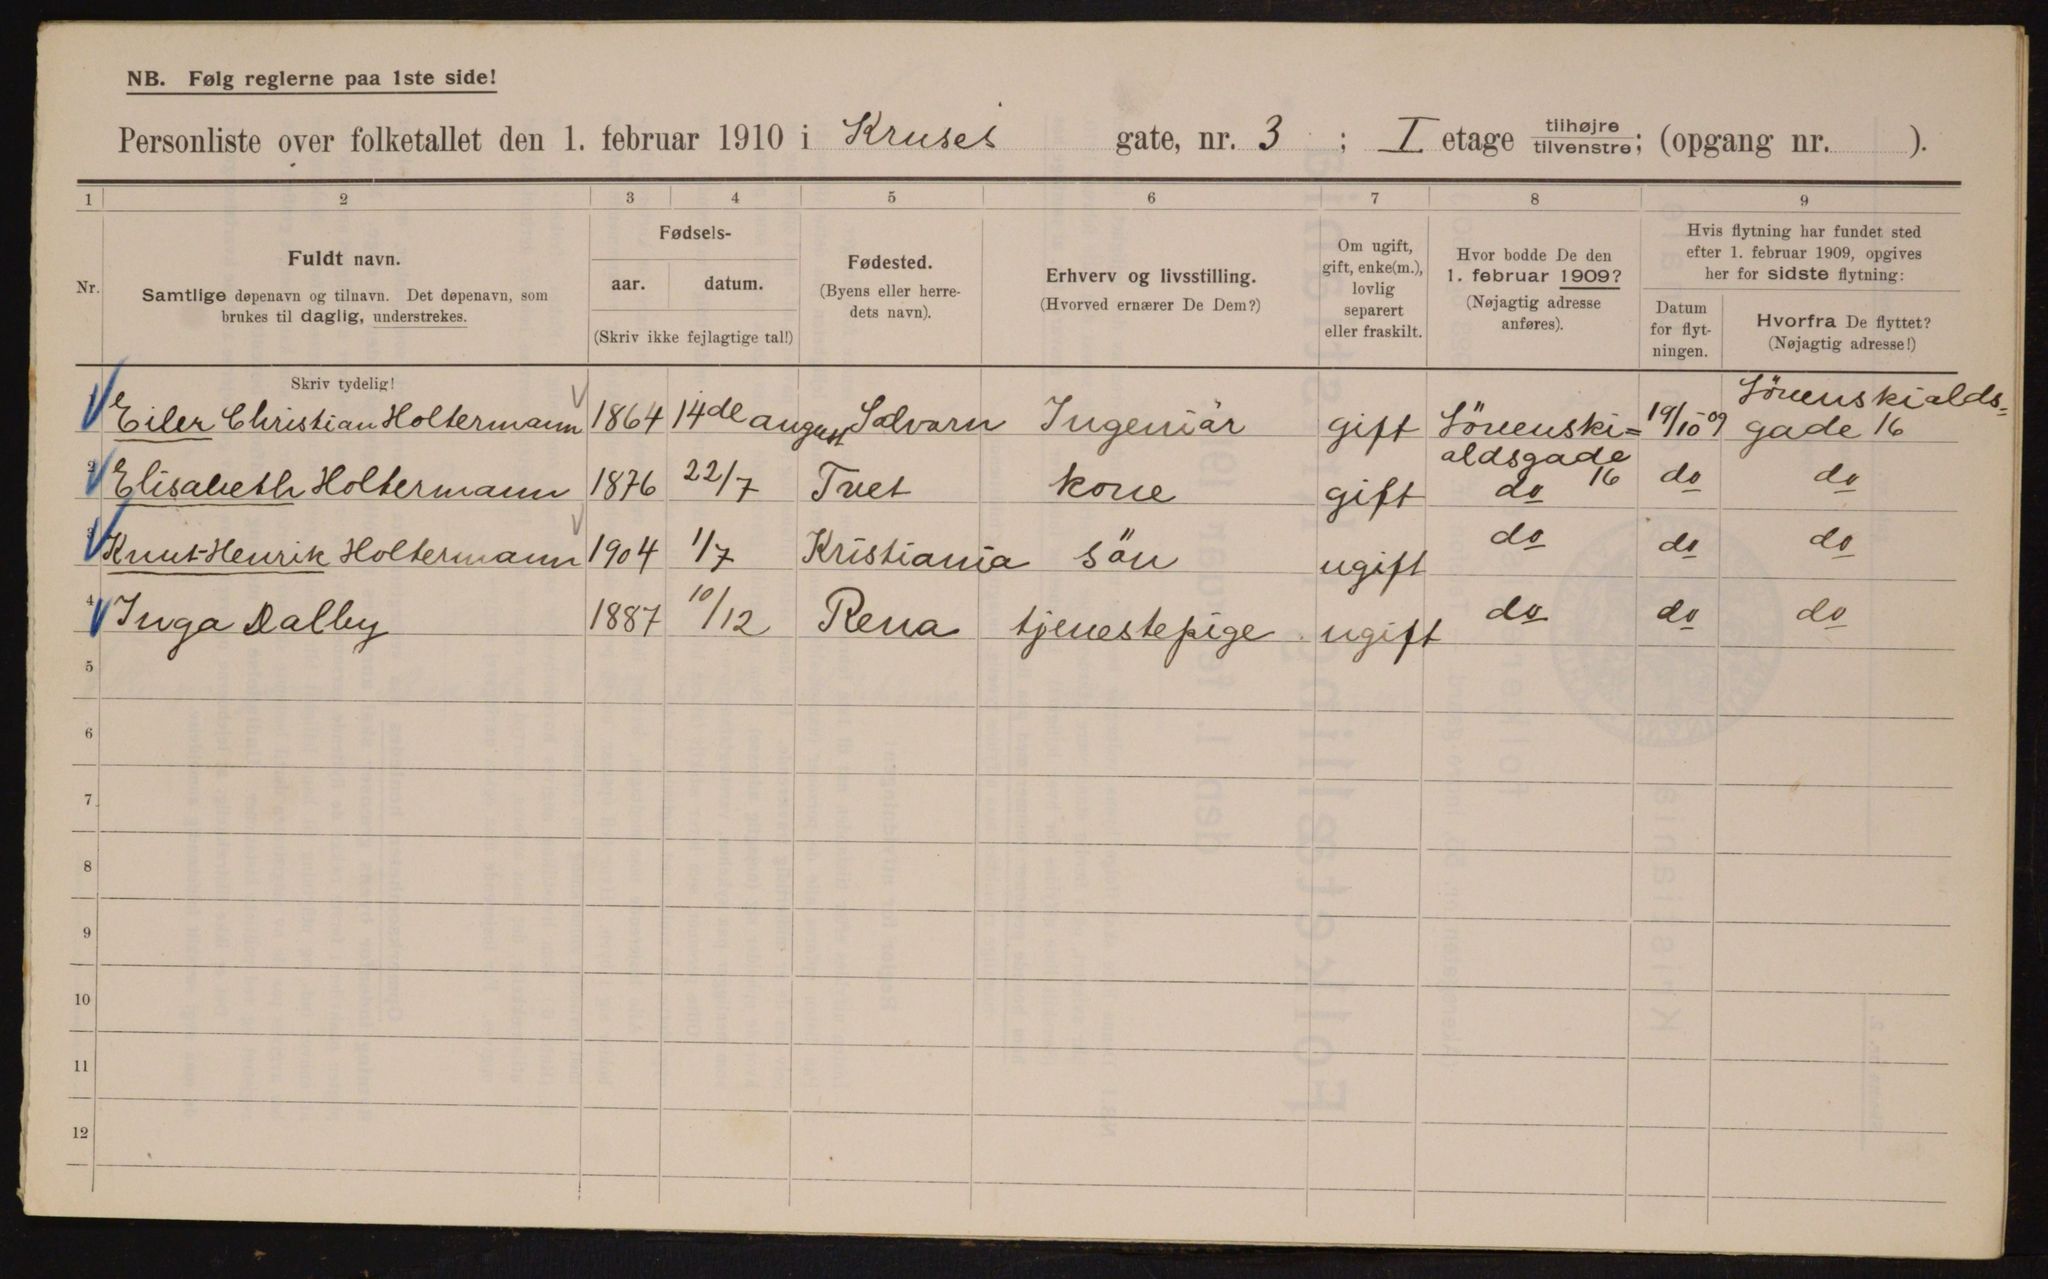 NB. Følg reglerne paa 1ste side!
Personliste over folketallet den 1. februar 1910 i Kruses gate, nr. 3 ; I etage tilhøjre tilvenstre; (opgang nr. ).
1 2 3 4 5 6 7 8 9
Nr.
Fuldt navn.
Samtlige døpenavn og tilnavn. Det døpenavn, som
brukes til daglig, understrekes.
Fødsels-
aar. datum.
(Skriv ikke fejlagtige tal!)
Fødested.
(Byens eller herre-
dets navn).
Erhverv og livsstilling.
(Hvorved ernærer De Dem?)
Om ugift,
gift, enke(m.),
lovlig
separert
eller fraskilt.
Hvor bodde De den
1. februar 1909?
(Nøjagtig adresse
anføres).
Hvis flytning har fundet sted
efter 1. februar 1909, opgives
her for sidste flytning:
Datum
for flyt-
ningen.
Hvorfra De flyttet?
(Nøjagtig adresse!)
Skriv tydelig!
Eiler Christian Holtermann 1864 14de august Solvorn Ingeniör gift Lövenski=
aldsgade 16
19/10 09 Lövenskialds=
gade 16
2 Elisabeth Holtermann 1876 22/7 Tvet kone gift do do do
3 Knut-Henrik Holtermann 1904 1/7 Kristiania sön ugift do do do
4 Inga Dalby 1887 10/12 Rena tjenestepige ugift do do do
5
6
7
8
9
10
11
12